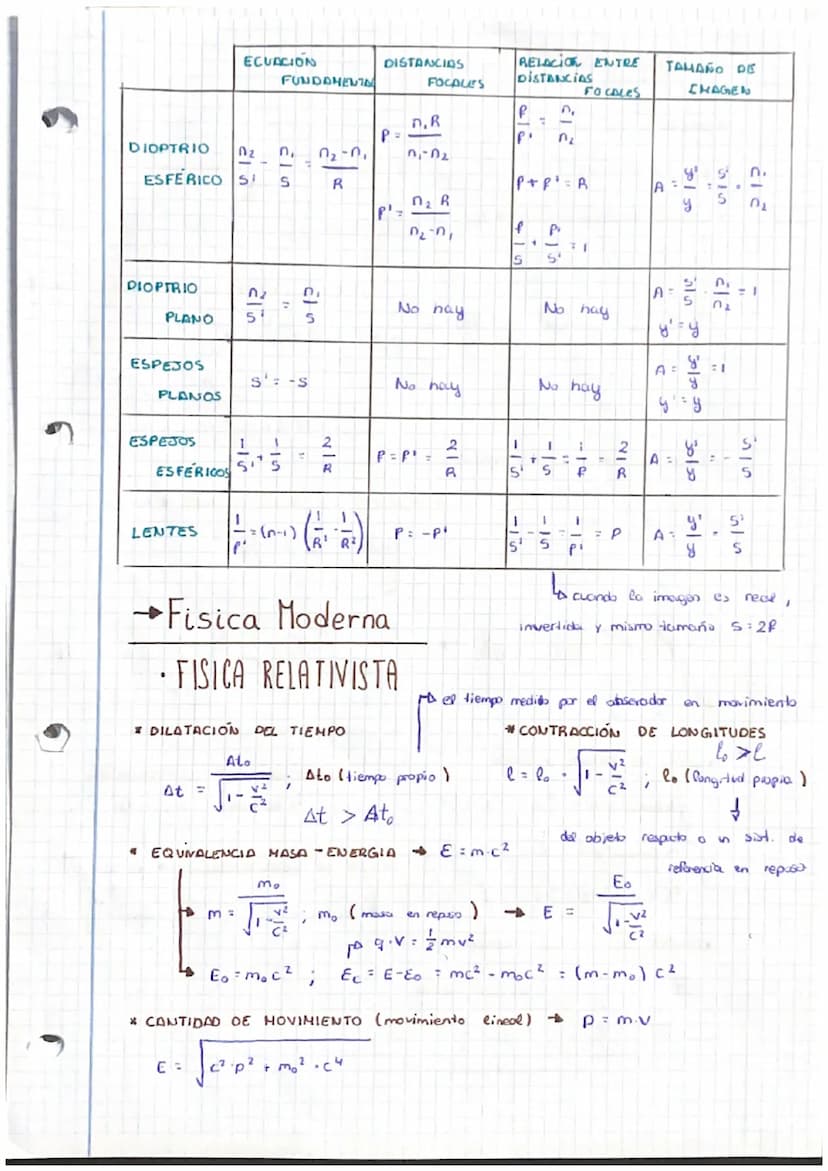 ECUACIÓN FUNDAMENTAL | DISTANCIAS FOCALES | RELACIÓN ENTRE DISTANCIAS FOCALES | TAMAÑO DE IMAGEN
DIOPTRIO ESFÉRICO | n₂/s' - n₁/s = (n₂-n₁)/R | f = n₁R/(n₁-n₂) | f/f' = n₁/n₂ | A = y'/y = s'/s · n₁/n₂
f' = n₂R/(n₂-n₁) | f+f' = R
f/s + f'/s' = 1
DIOPTRIO PLANO | n₂/s' = n₁/s | No hay | No hay | A = s'/s · n₁/n₂ = 1
y' = y
ESPEJOS PLANOS | s' = -s | No hay | No hay | A = y'/y = 1
y' = y
ESPEJOS ESFÉRICOS | 1/s' + 1/s = 2/R | f = f' = 2/R | 1/s' + 1/s = 1/f = 2/R | A = y'/y = - s'/s
LENTES | 1/f' = (n-1) (1/R¹ - 1/R²) | f = -f' | 1/s' - 1/s = 1/f' = P | A = y'/y = s'/s
↳ cuando la imagen es real,
invertida y mismo tamaño s = 2f
→ Fisica Moderna
· FISICA RELATIVISTA
→ el tiempo medido por el observador en movimiento
* DILATACIÓN DEL TIEMPO
* CONTRACCIÓN DE LONGITUDES
l₀ > l
Δt = Δt₀/√(1 - v²/c²) ; Δt₀ (tiempo propio)
l = l₀ · √(1 - v²/c²) ; l₀ (longitud propia)
Δt > Δt₀
del objeto respecto a un sist. de
referencia en reposo
* EQUIVALENCIA MASA - ENERGIA → E = m·c²
→ m = m₀/√(1 - v²/c²) ; m₀ (masa en reposo) → E = E₀/√(1 - v²/c²)
→ q·V = ½mv²
→ E₀ = m₀c² ; Ec = E-E₀ = mc² - m₀c² = (m-m₀) c²
* CANTIDAD DE MOVIMIENTO (movimiento lineal) → p = m·v
E = √(c²·p² + m₀²·c⁴)